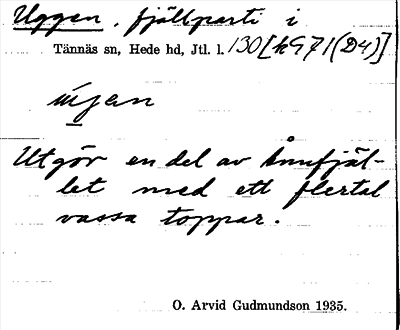 Uggen, fjällparti i
Tännäs sn, Hede hd, Jtl. l. 130 [k971(D4)]
úgen
Utgör en del av Anåfjäl-
let med ett flertal
vassa toppar.
O. Arvid Gudmundson 1935.